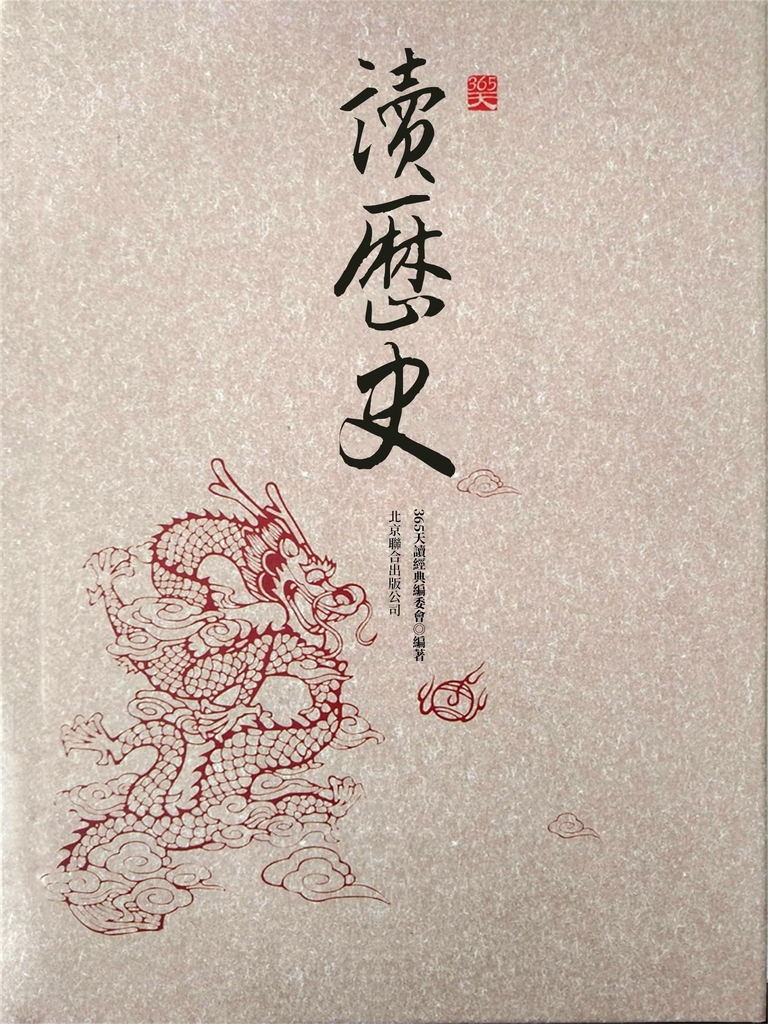 365天
讀歷史
365天讀經典編委會◎編著
北京聯合出版公司